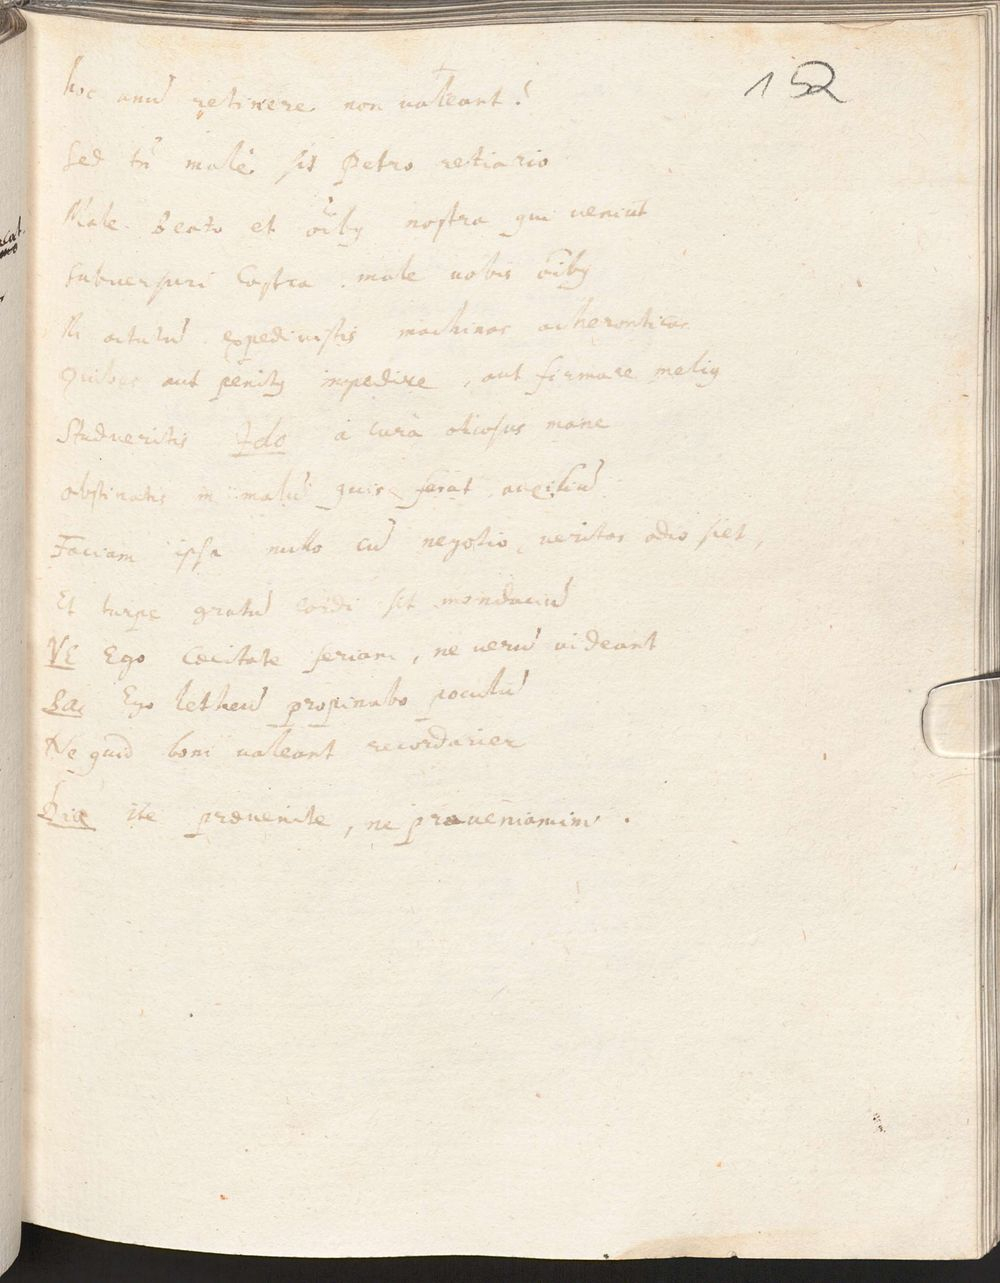 152
hoc anū retinere non valeant!
Sed tn̄ malè sit Petro retiario
Male Beato et oībꝯ nostra qui veniūt
Subuersuri Castra. male uobis oībꝯ
Ni actutū expediuistis machinas acheronticas
Quibus aut penitꝯ impedire, aut firmare meliꝯ
Studueritis Ido à cura otiosus mane
obstinatis in malū quis ferat auxiliū
Faciam ipsa nullo cū negotio, ueritas odio siet,
Et turpe gratū cordi sit mendaciū
VE Ego Cecitate feriam, ne uerū uideant
Ba Ego letheū propinabo poculū
Ne quid boni ualeant recordarier
ite preuenite, ne preueniamini.